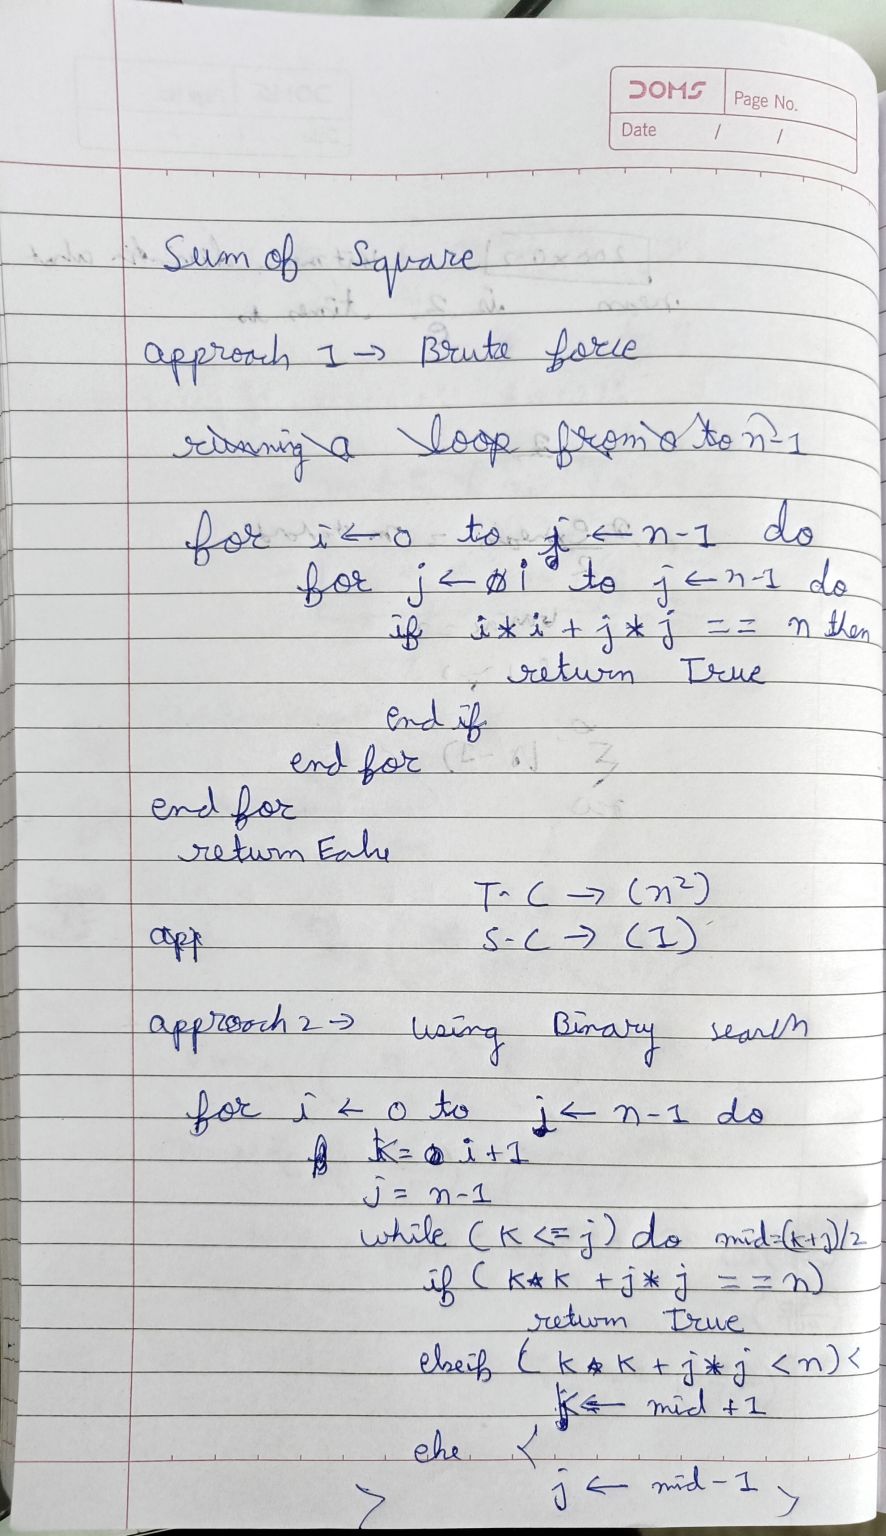 DOMS
Page No.
Date / /
Sum of Square
approach 1 → Brute force
running a loop from 0 to n-1
for i ← 0 to j ← n-1 do
for j ← i to j ← n-1 do
if i * i + j * j == n then
return True
end if
end for
end for
return False
T-C → (n²)
app S-C → (1)
approach 2 → using Binary search
for i ← 0 to j ← n-1 do
k = i+1
j = n-1
while (k <= j) do mid=(k+j)/2
if (k*k + j*j == n)
return True
elseif (k*k + j*j < n) <
k ← mid +1
else <
j ← mid-1 >
>